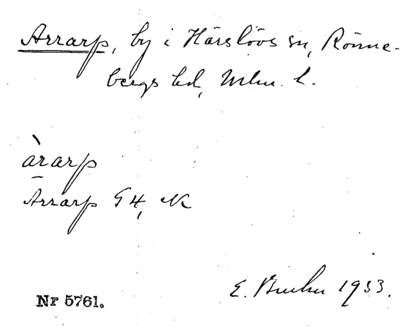 Arrarp, by i Härslövs sn, Rönne-
bergs hd, Mlm. l.
àrarp
Arrarp G4, K
E. 1933.
Nr 5761.